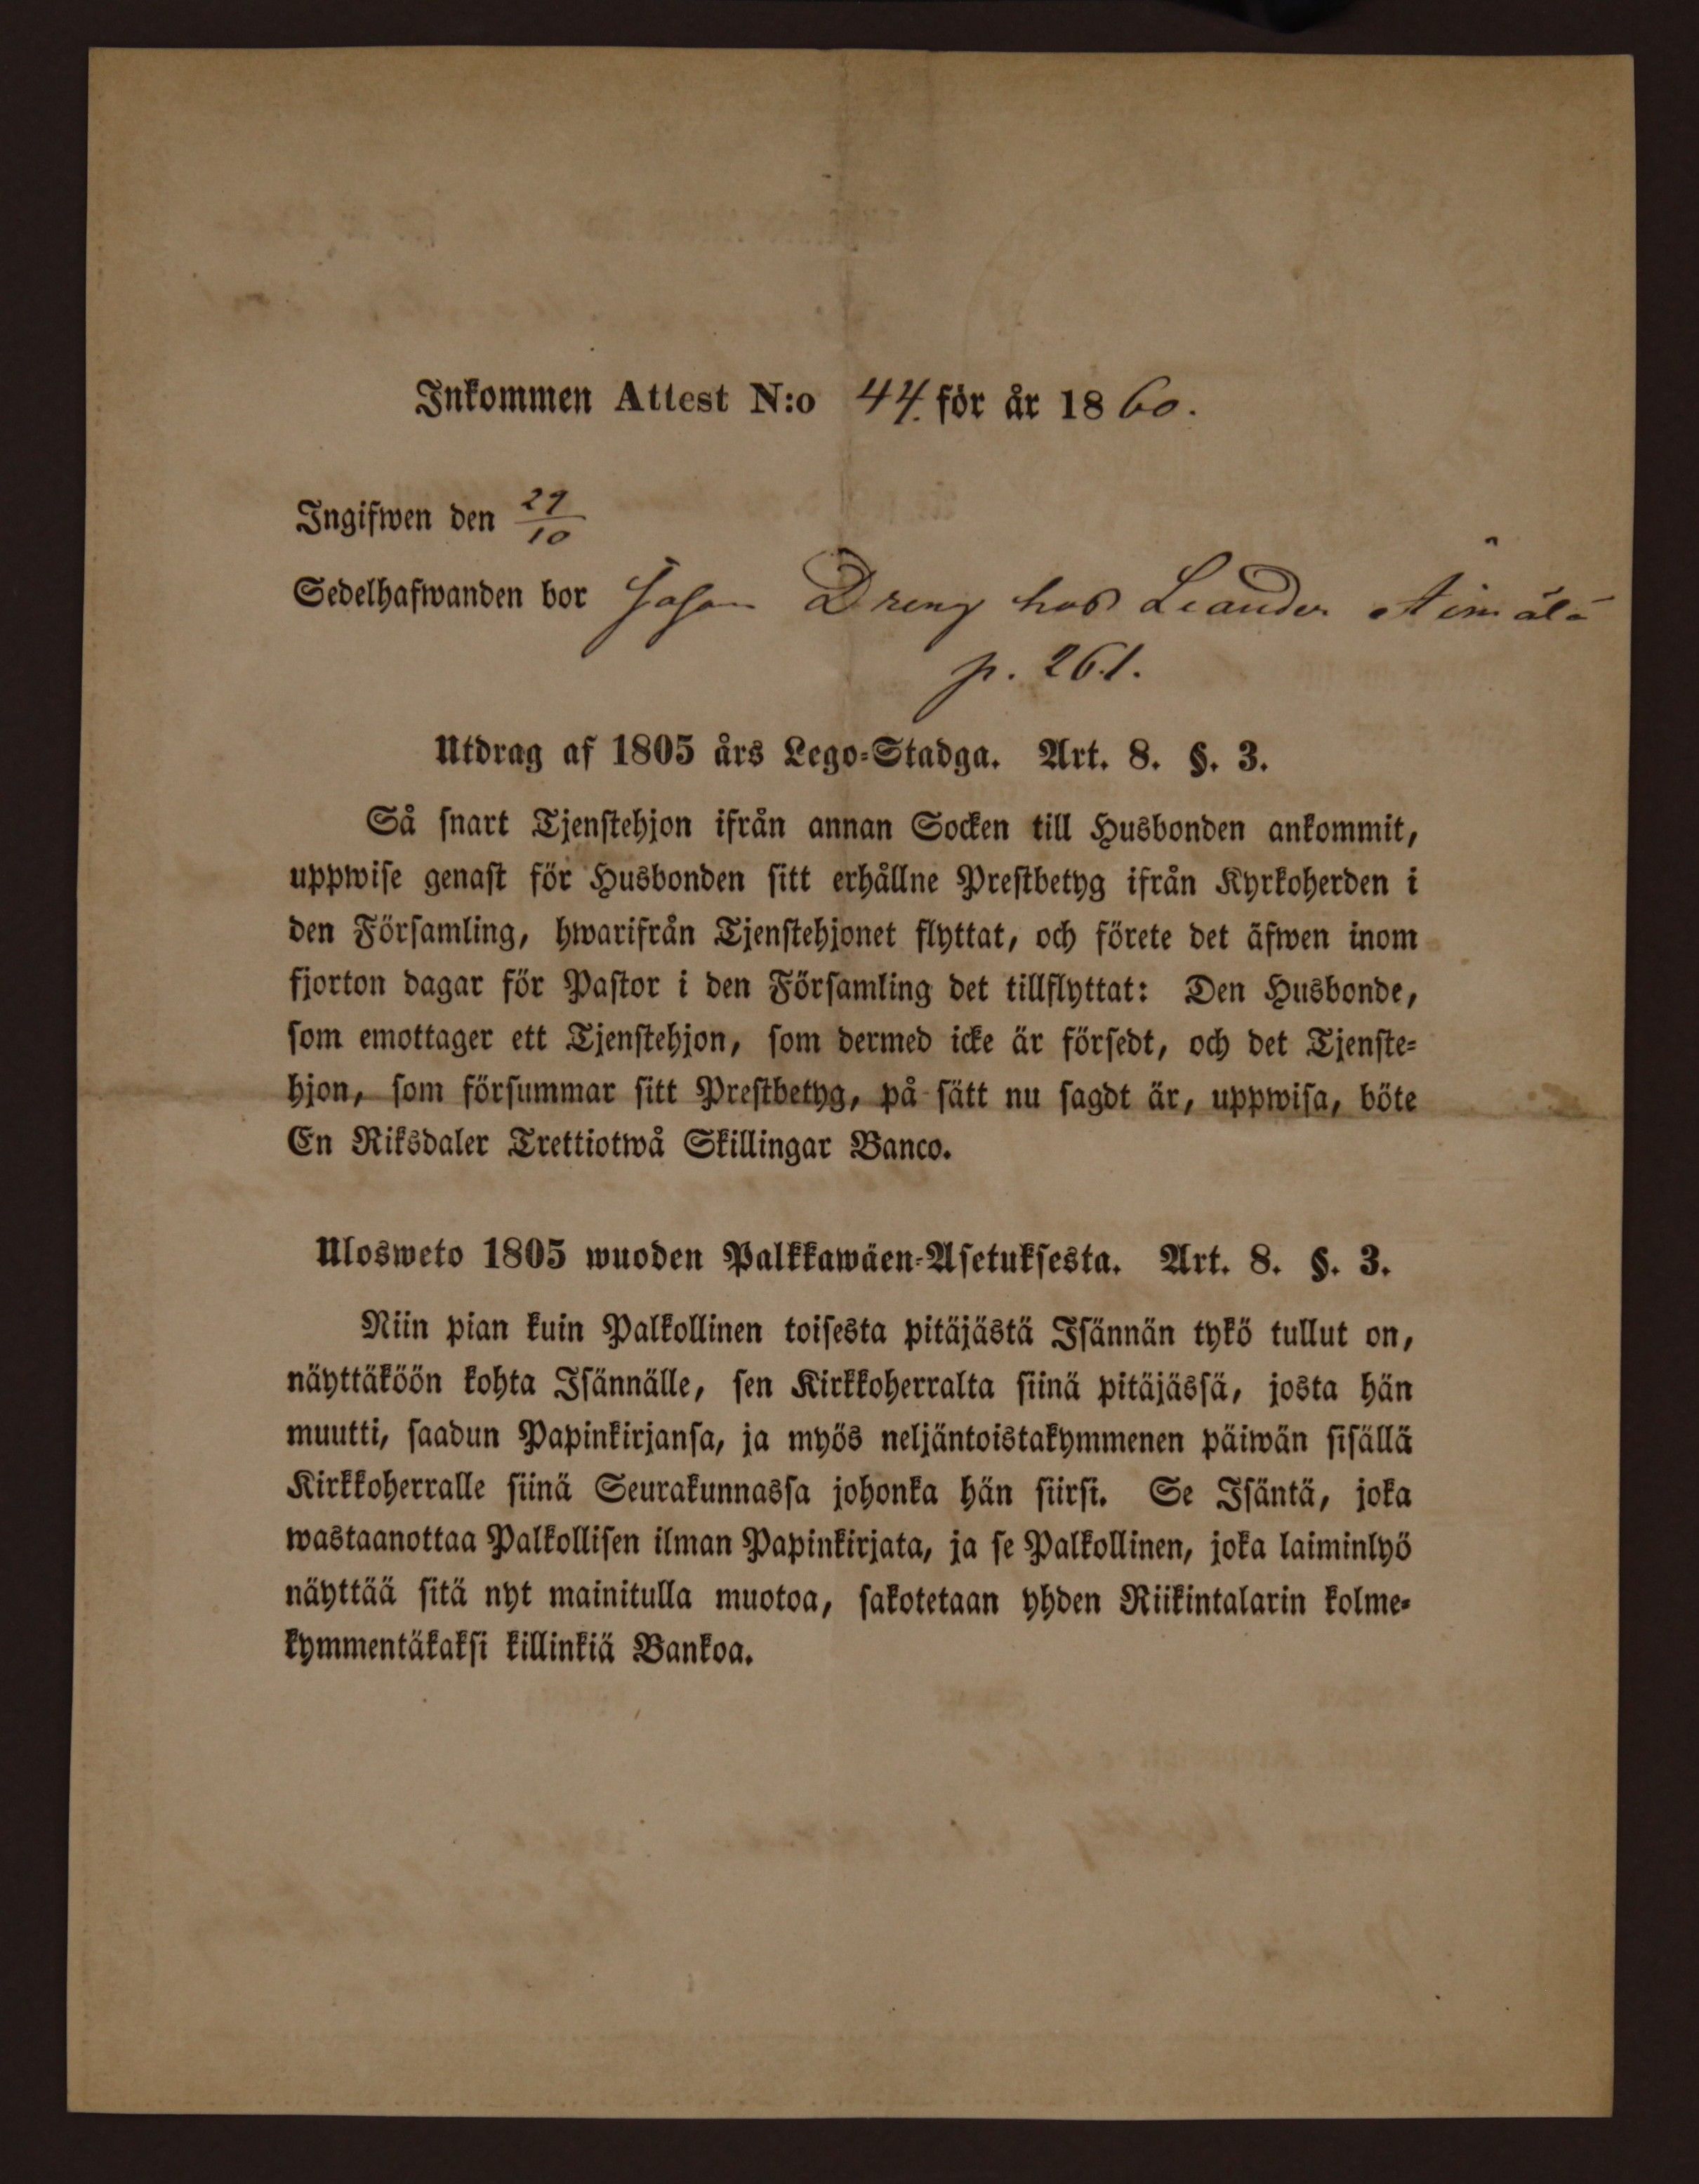 Inkommen Attest N:o 44. för år 1860.
Ingifwen den 29/10
Sedelhafwanden bor såsom Dreng hos Leander Äimälä
p. 261.
Utdrag af 1805 års Lego-Stadga. Art. 8. §. 3.
Så snart Tjenstehjon ifrån annan Socken till Husbonden ankommit,
uppwise genast för Husbonden sitt erhållne Prestbetyg ifrån Kyrkoherden i
den Församling, hwarifrån Tjenstehjonet flyttat, och förete det äfwen inom
fjorton dagar för Pastor i den Församling det tillflyttat: Den Husbonde,
som emottager ett Tjenstehjon, som dermed icke är försedt, och det Tjenste-
hjon, som försummar sitt Prestbetyg, på sätt nu sagdt är, uppwisa, böte
En Riksdaler Trettiotwå Skillingar Banco.
Ulosweto 1805 wuoden Palkkawäen-Asetuksesta. Art. 8. §. 3.
Niin pian kuin Palkollinen toisesta pitäjästä Isännän tykö tullut on,
näyttäköön kohta Isännälle, sen Kirkkoherralta siinä pitäjässä, josta hän
muutti, saadun Papinkirjansa, ja myös neljäntoistakymmenen päiwän sisällä
Kirkkoherralle siinä Seurakunnassa johonka hän siirsi. Se Isäntä, joka
wastaanottaa Palkollisen ilman Papinkirjata, ja se Palkollinen, joka laiminlyö
näyttää sitä nyt mainitulla muotoa, sakotetaan yhden Riikintalarin kolme-
kymmentäkaksi killinkiä Bankoa.